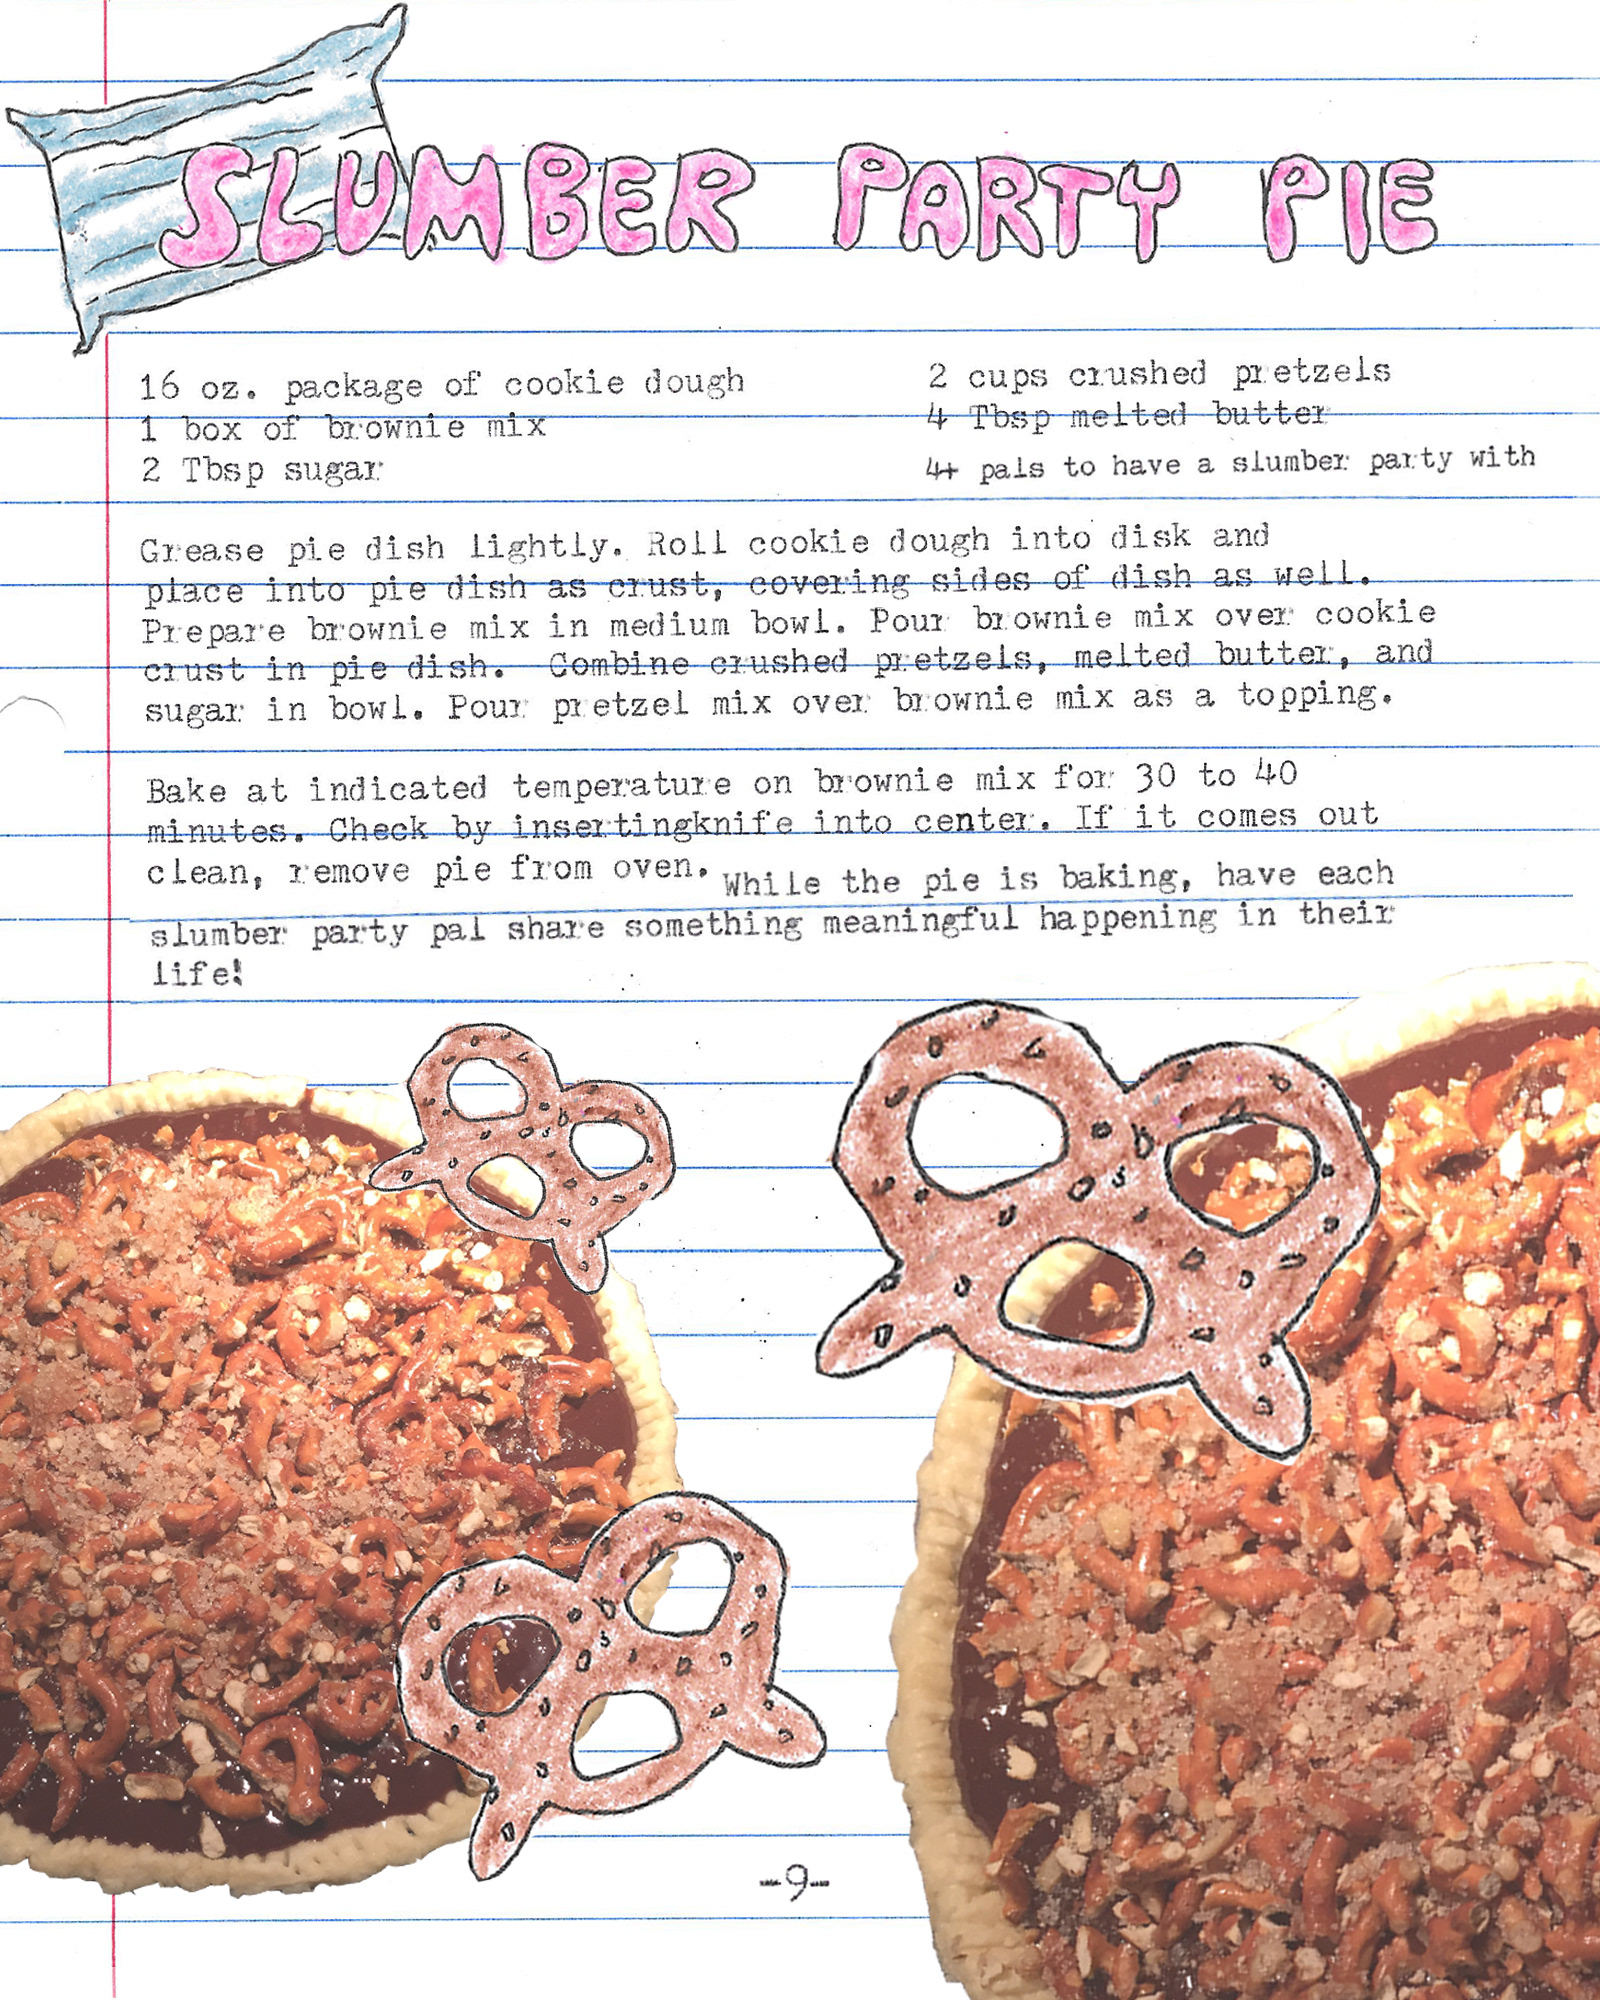 SLUMBER PARTY PIE
16 oz. package of cookie dough
1 box of brownie mix
2 Tbsp sugar
2 cups crushed pretzels
4 Tbsp melted butter
4+ pals to have a slumber party with
Grease pie dish lightly. Roll cookie dough into disk and
place into pie dish as crust, covering sides of dish as well.
Prepare brownie mix in medium bowl. Pour brownie mix over cookie
crust in pie dish. Combine crushed pretzels, melted butter, and
sugar in bowl. Pour pretzel mix over brownie mix as a topping.
Bake at indicated temperature on brownie mix for 30 to 40
minutes. Check by insertingknife into center. If it comes out
clean, remove pie from oven. While the pie is baking, have each
slumber party pal share something meaningful happening in their
life!
-9-